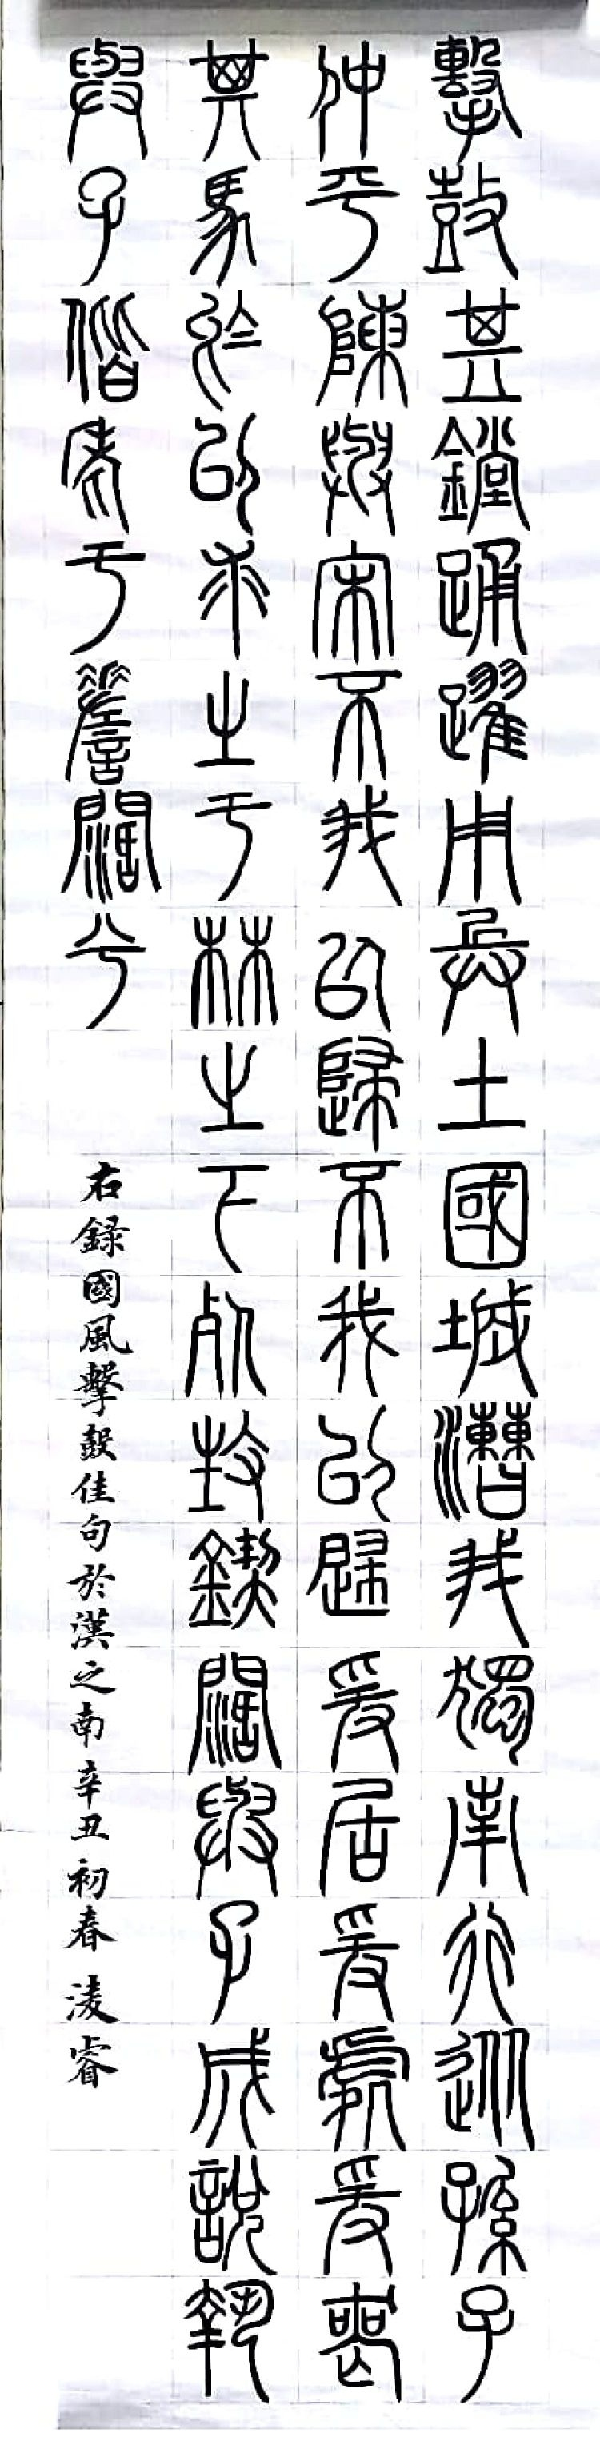 擊鼓其鏜踊躍用兵土國城漕我獨南行從孫子
仲平陳與宋不我以歸不我以歸爰居爰處爰喪
其馬於以求之于林之下死生鍥闊與子成說執
與子偕老于嗟闊兮
右錄國風擊鼓佳句於漢之南辛丑初春淩睿